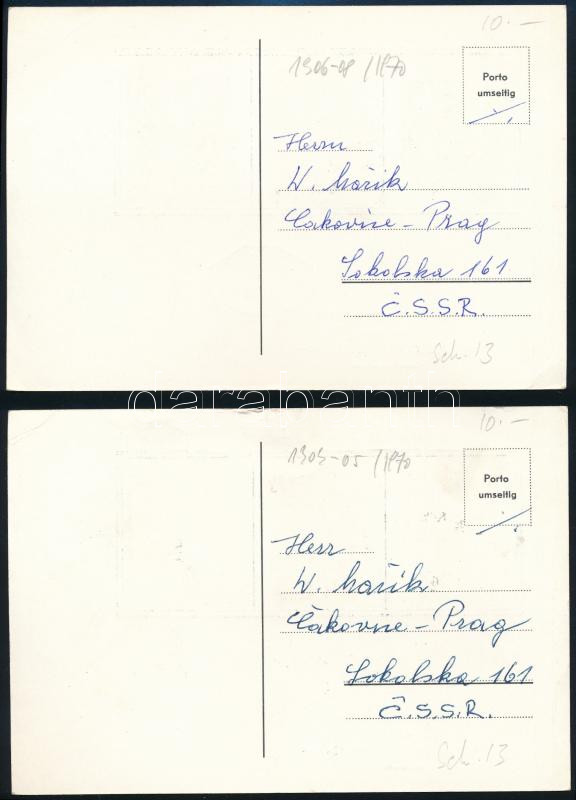 10.-
1306-08 /1P70
Porto
umseitig
Herrn
W. Mařik
Čakovice - Prag
Sokolska 161
Č.S.S.R.
Sch. 13
darabanth
10.-
1303-05 /1P70
Porto
umseitig
Herr
W. Mařik
Čakovice - Prag
Sokolska 161
Č.S.S.R.
Sch. 13